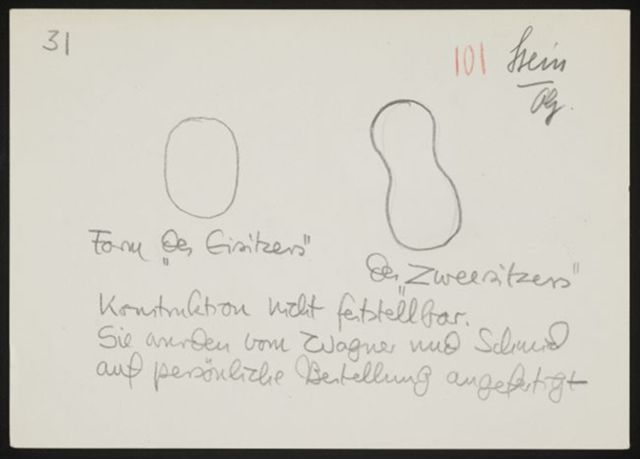 31
101 Stein
Form "des Einsitzers"
des "Zweisitzers"
Konstruktion nicht feststellbar.
Sie wurden vom Wagner und Schmied
auf persönliche Bestellung angefertigt